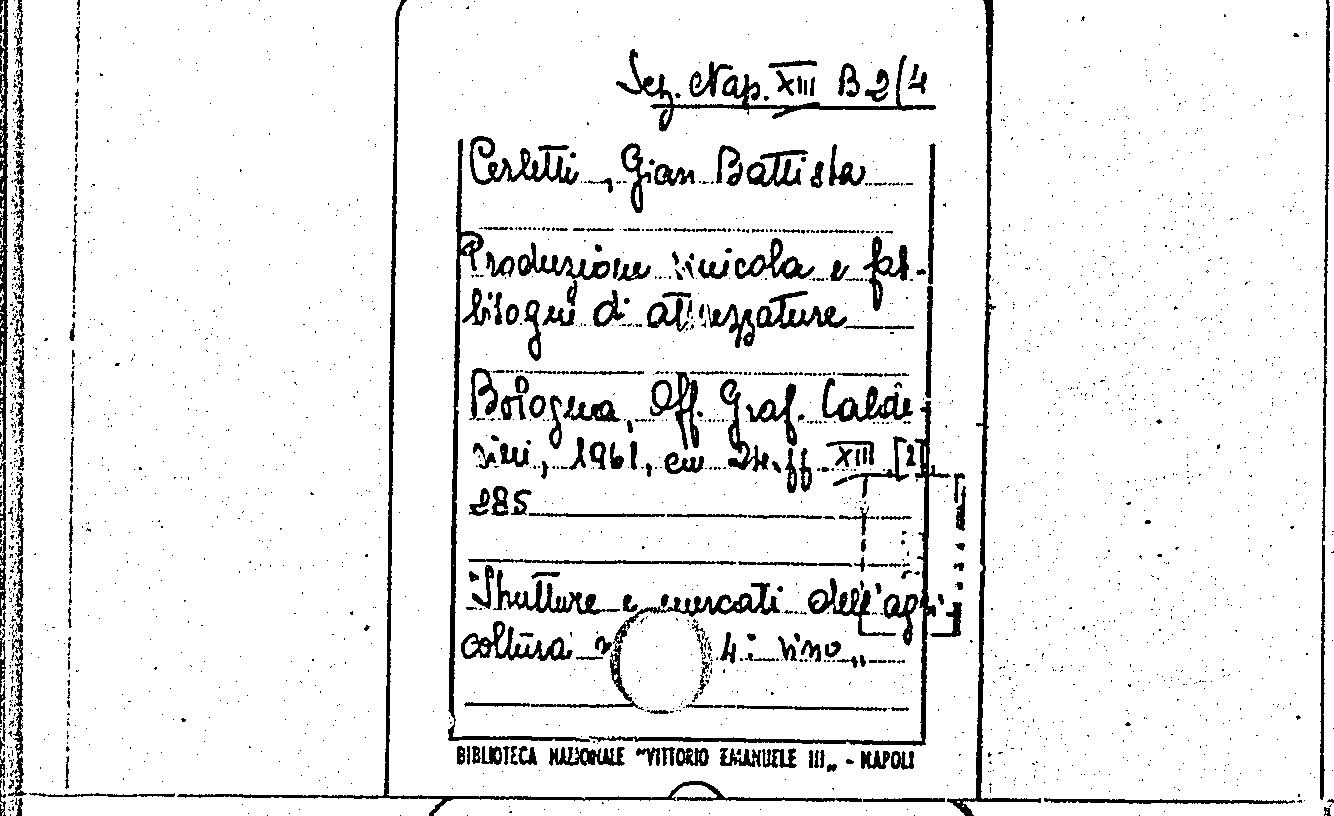 Sez. Nap. XIII B 2(4
Cerletti, Gian Battista
Produzione vinicola e fab-
bisogni di attrezzature
Bologna, Off. Graf. Calde-
rini, 1961, cm 24. ff. XIII [2]
285
"Strutture e mercati dell'agri-
coltura 4: vino„
BIBLIOTECA NAZIONALE "VITTORIO EMANUELE III„ - NAPOLI